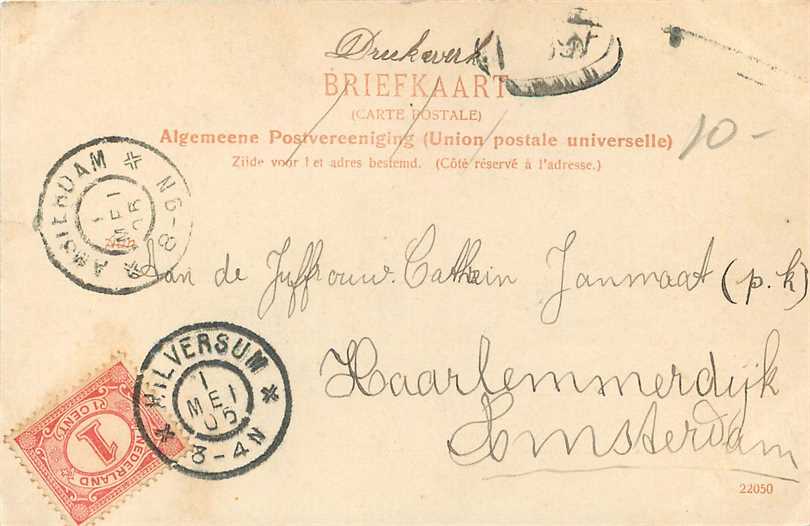 Drukwerk
BRIEFKAART
(CARTE POSTALE)
Algemeene Postvereeniging (Union postale universelle)
Zijde voor het adres bestemd. (Côté réservé à l'adresse.)
10-
AMSTERDAM
1
MEI
05
8-9N
Aan de Juffrouw. Cathein Janmaat (p. k)
Haarlemmerdijk
Amsterdam
HILVERSUM
1
MEI
05
8-4N
NEDERLAND
1
(1 CENT)
22050